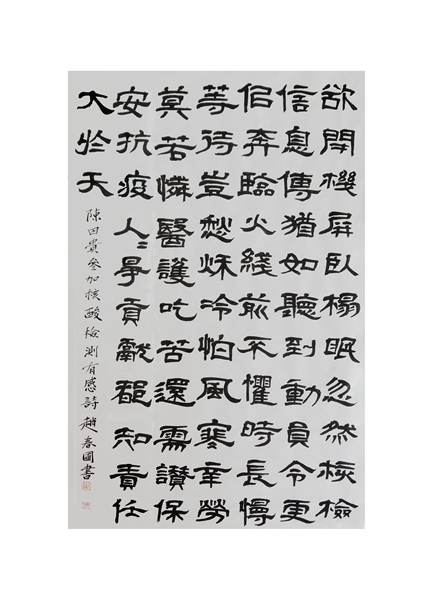 欲閉機屏臥榻眠忽然核檢
信息傳猶如聽到動員令更
佀奔臨火綫前不懼時長慢
等待豈愁秋冷怕風寒辛勞
莫若憐醫護吃苦還需讚保
安抗疫人〻爭貢獻都知責任
大於天
陳田貴參加核酸檢測有感詩 趙春圖書